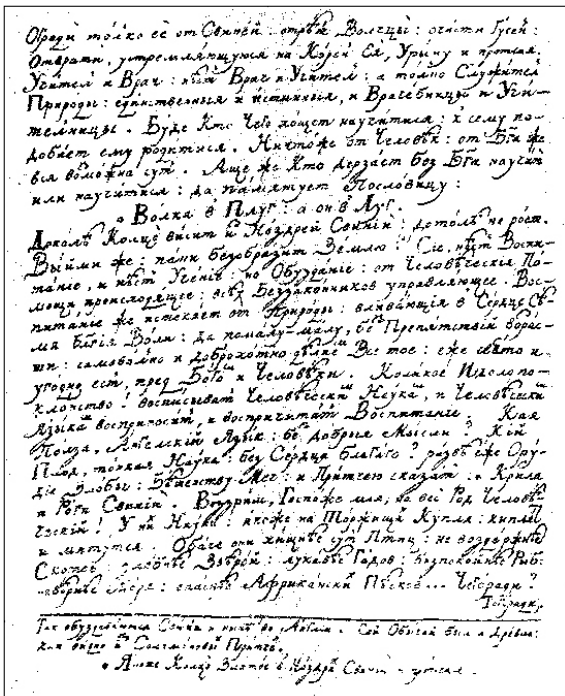 Огради только её от Свиней: отрѣжь Волчцы: очисти Гусен:
Отврати, устремляющуюся на Корень Ея, Урыну и протчая.
Учитель и Врач: нѣсть Врач и Учитель: а только Служитель
Природы: единственныя и истинныя, и Врачебницы и Учи-
тельницы. Буде Кто Чего хощет научитися: к сему по-
добает ему родитися. Ничтоже от Человѣк: от Бга же
вся возможна суть. Аще же Кто дерзает без Бга научить
или научитися: да памятует Пословицу:
Волка в Плуг: а он в Луг.
Доколѣ Колцо висит из Ноздрей Свиніи: дотолѣ не роет.
Выйми же: паки безобразит Землю. Сіе, нѣсть Воспи-
таніе, и нѣсть Ученіе: но Обузданіе: от Человѣческія По-
мощи происходящее: всѣх Беззаконников управляющее. Вос-
питаніе же истекает от Природы: вливающія в Сердце Сѣ-
мя Благія Воли: да помалу-малу, без Препятствій возрос-
ши: самовольно и доброхотно дѣлаем Все тое: еже свято и
угодно есть, пред Богом и Человѣки. Коликое Идолопо-
клонство! восписывать Человѣческим Наукам, и Человѣческим
Языкам восприносить, и воспричитать Воспитаніе. Кая
Полза, Ангелскій Язык: без доброй Мысли? Кій
Плод, тонкая Наука: без Сердца благаго? развѣ еже Ору-
діе Злобы: Бѣшенству Меч: и Притчею сказать: Крила
и Роги Свиніи. Воззрим, Госпоже моя, на весь Род Человѣ-
ческій! У них Науки: якоже на Торжищах Купля: кипит
и мятутся. Обаче они хищнѣе суть Птиц: не воздержнѣе
Скотов: злобнѣе Звѣрей: лукавѣе Гадов: безпокойнѣе Рыб:
невѣрнѣе Моря: опаснѣе Африканских Пѣсков... Чегоради?
Тогоради,
Так обуздавается Свинія и нынѣ во Сей Обычай был и Древле:
как видно из Соломоновой Притчи.
Аще Колцо Златое в Ноздрях Свиніи